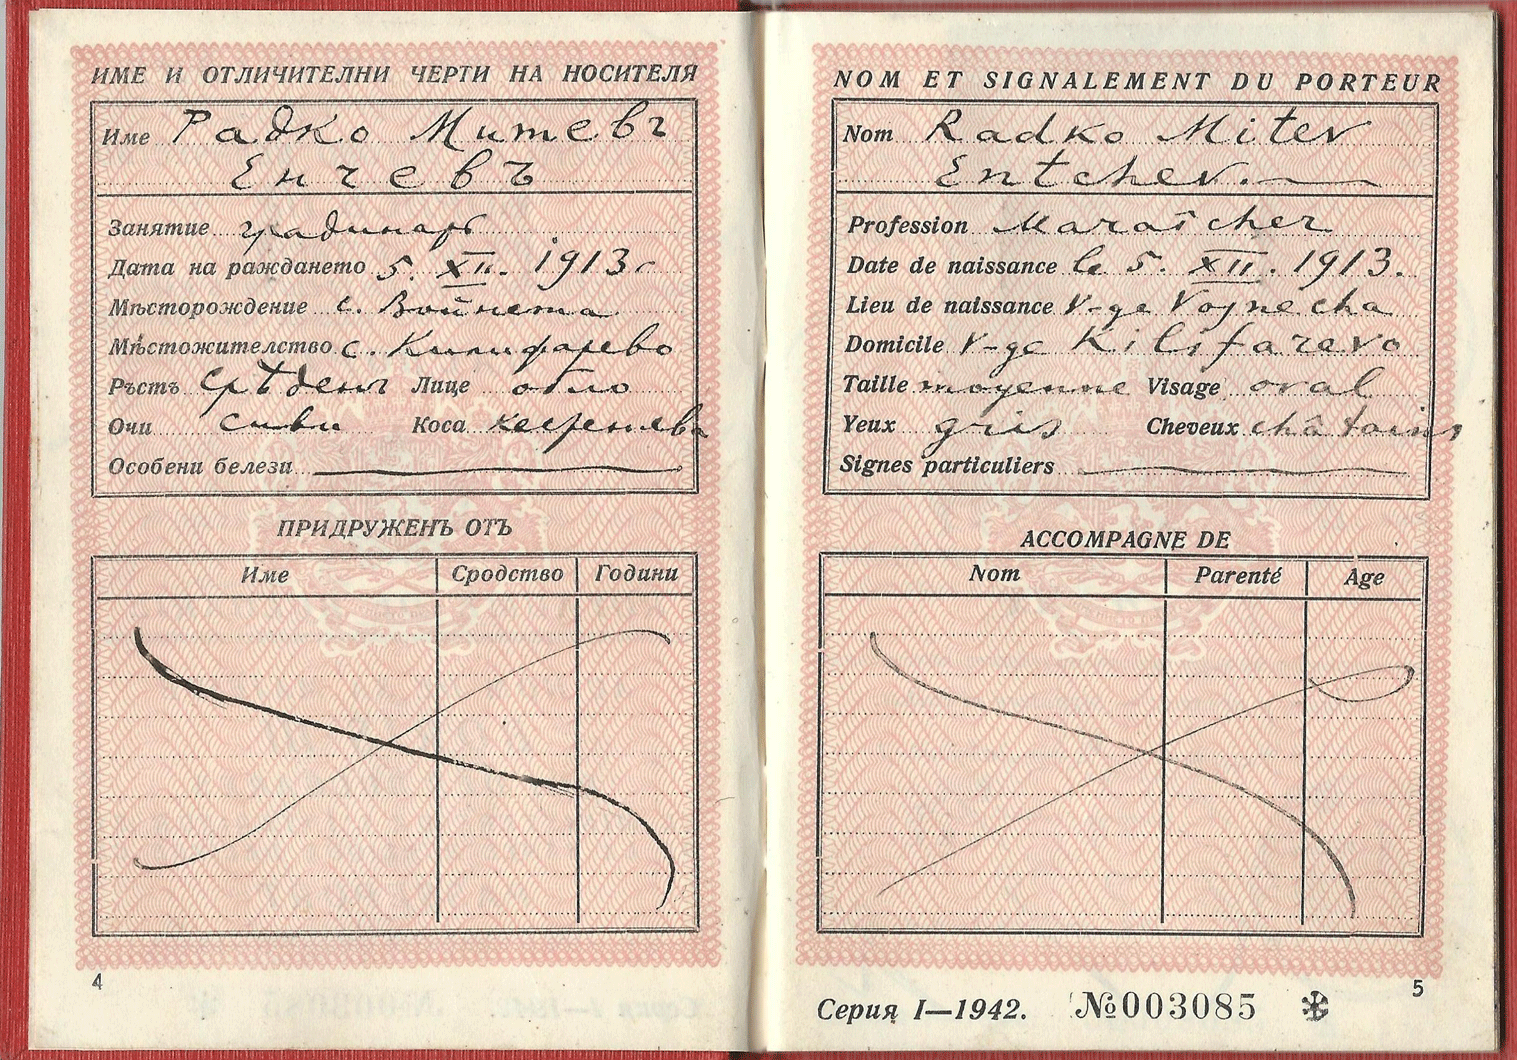 ИМЕ И ОТЛИЧИТЕЛНИ ЧЕРТИ НА НОСИТЕЛЯ
Име Радко Митевъ
Енчевъ
Занятие градинарь
Дата на раждането 5. XII. 1913
Мѣсторождение с. Войнета
Мѣстожителство с. Килифарево
Ръстъ срѣденъ Лице овло
Очи сиви Коса кестенява
Особени белези
ПРИДРУЖЕНЪ ОТЪ
Име Сродство Години
4
NOM ET SIGNALEMENT DU PORTEUR
Nom Radko Mitev
Entchev.
Profession Maraîcher
Date de naissance le 5. XII. 1913.
Lieu de naissance V-ge Voyne cha
Domicile V-ge Kilifarevo
Taille moyenne Visage oval
Yeux gris Cheveux châtains
Signes particuliers
ACCOMPAGNE DE
Nom Parenté Age
5
Серия I—1942. №003085